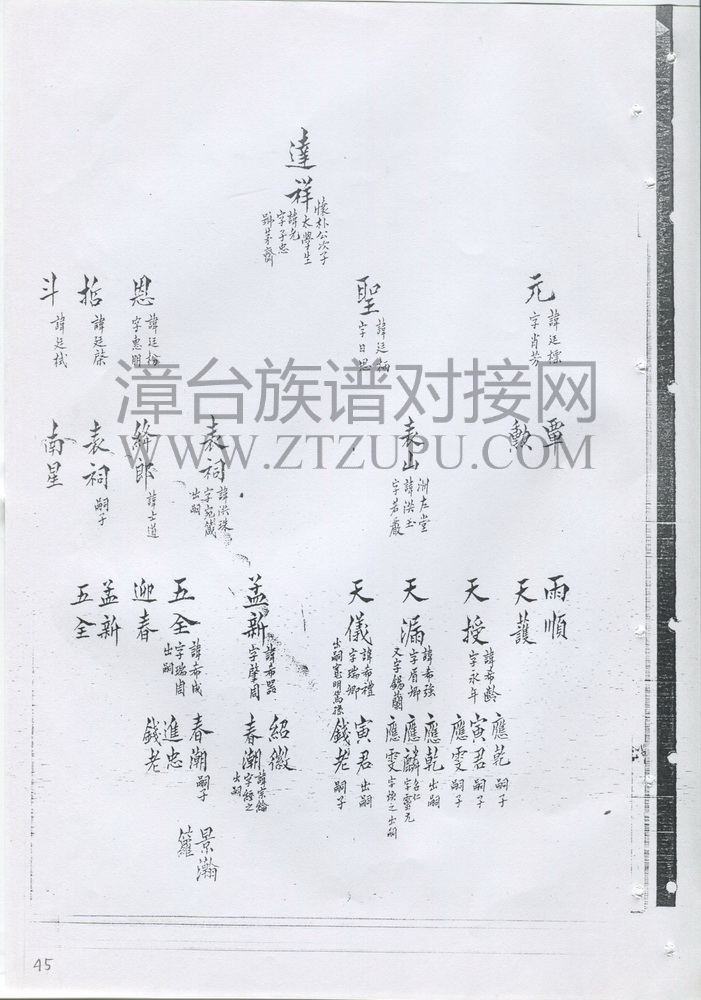 達祥
懷朴公次子
太學生
諱光
字子忠
號芳齋
元
諱廷檽
字肖芳
聖
字日思
恩
諱廷楡
字惠明
哲
諱廷棨
斗
諱廷棫
覃
勲
袁山
洲左堂
諱洪玉
字若巖
袁祠
諱洪珠
字宛箴
出嗣
絳郎
諱士道
袁祠
嗣子
南星
雨順
天護
天授
諱希齡
字永年
天漏
諱希強
字眉卿
又字錫蘭
天儀
諱希禮
字瑞卿
出嗣憲明篤孫
孟新
諱希器
字肇周
五全
諱希成
字瑞周
出嗣
迎春
孟新
五全
應乾
嗣子
寅君
嗣子
應雯
嗣子
應乾
出嗣
應麟
名仁
字靈元
應雯
字煥之出嗣
寅君
出嗣
錢老
嗣子
紹徽
春潮
諱宗綸
字經之
出嗣
春潮
嗣子
進忠
錢老
景瀚
籮
漳台族谱对接网
WWW.ZTZUPU.COM
45